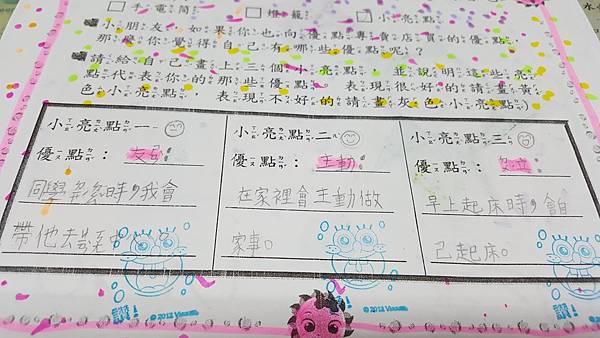 手電筒 燈籠 小亮點
小朋友,如果你也向優點專賣店買的優點,
那麼你覺得自己有哪些優點呢?
請給自己畫上三個小亮點,並說明這些亮
點代表你的那些優點。(表現很好的請畫黃
色小亮點,表現不好的請畫灰色小亮點)
小亮點一
優點:
同學 時,我會
帶他去
小亮點二
優點:主動
在家裡會主動做
家事。
小亮點三
優點:獨立
早上起床時,會自
己起床。
©2012 Viacom
©2012 Viacom